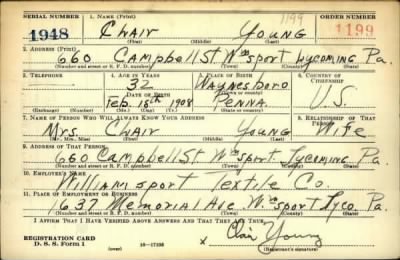 SERIAL NUMBER 1. NAME (Print) 1199 ORDER NUMBER
1948 Clair Young 1199
(First) (Middle) (Last)
2. ADDRESS (Print)
660 Campbell St Wmsport Lycoming Pa.
(Number and street or R. F. D. number) (Town) (County) (State)
3. TELEPHONE 4. AGE IN YEARS 5. PLACE OF BIRTH 6. COUNTRY OF CITIZENSHIP
32 Waynesboro
DATE OF BIRTH (Town or county)
Feb. 18th 1908 Penna. U.S.
(Exchange) (Number) (Mo.) (Day) (Yr.) (State or country)
7. NAME OF PERSON WHO WILL ALWAYS KNOW YOUR ADDRESS 8. RELATIONSHIP OF THAT PERSON
Mrs. Clair Young Wife
(Mr., Mrs., Miss) (First) (Middle) (Last)
9. ADDRESS OF THAT PERSON
660 Campbell St Wmsport Lycoming Pa.
(Number and street or R. F. D. number) (Town) (County) (State)
10. EMPLOYER'S NAME
Williamsport Textile Co.
11. PLACE OF EMPLOYMENT OR BUSINESS
1637 Memorial Ave Wmsport Lyco. Pa.
(Number and street or R. F. D. number) (Town) (County) (State)
I AFFIRM THAT I HAVE VERIFIED ABOVE ANSWERS AND THAT THEY ARE TRUE.
REGISTRATION CARD
D. S. S. Form 1 x Clair Young
(Registrant's signature)